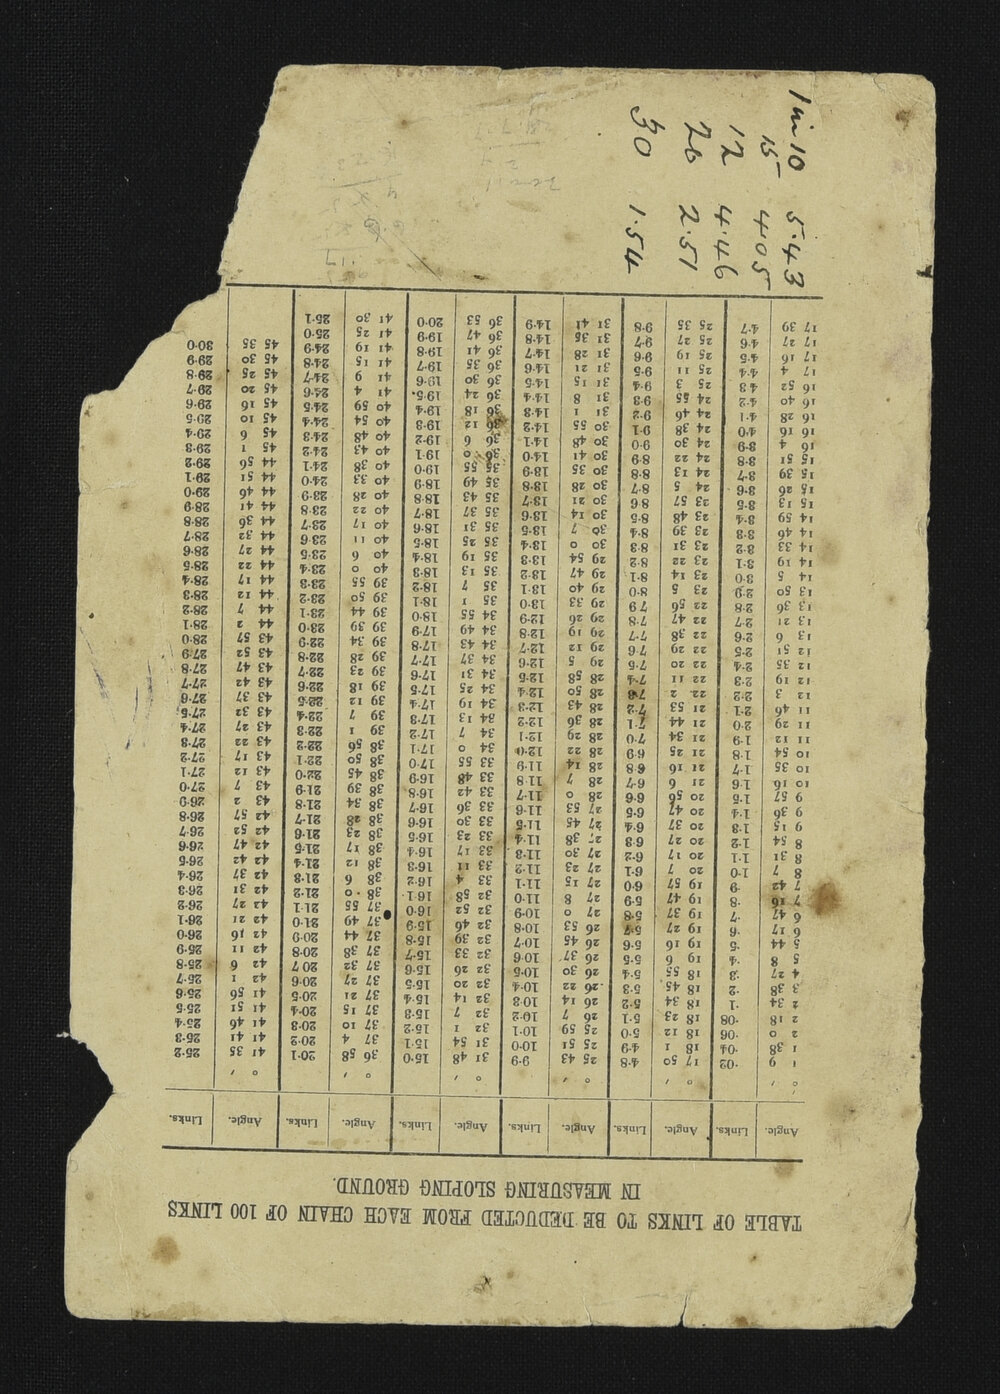 TABLE OF LINKS TO BE DEDUCTED FROM EACH CHAIN OF 100 LINKS
IN MEASURING SLOPING GROUND.
Angle. Links. Angle. Links. Angle. Links. Angle. Links. Angle. Links. Angle. Links.
° ′ ° ′ ° ′ ° ′ ° ′ ° ′
1 9 ·02 17 50 4·8 25 43 9·9 31 48 15·0 36 58 20·1 41 35 25·2
1 38 ·04 18 1 4·9 25 51 10·0 31 54 15·1 37 4 20·2 41 41 25·3
2 0 ·06 18 12 5·0 25 59 10·1 32 1 15·2 37 10 20·3 41 46 25·4
2 18 ·08 18 23 5·1 26 7 10·2 32 7 15·3 37 15 20·4 41 51 25·5
2 34 ·1 18 34 5·2 26 14 10·3 32 14 15·4 37 21 20·5 41 56 25·6
3 38 ·2 18 45 5·3 26 22 10·4 32 20 15·5 37 27 20·6 42 1 25·7
4 27 ·3 18 55 5·4 26 30 10·5 32 26 15·6 37 32 20·7 42 6 25·8
5 8 ·4 19 6 5·5 26 37 10·6 32 33 15·7 37 38 20·8 42 11 25·9
5 44 ·5 19 16 5·6 26 45 10·7 32 39 15·8 37 44 20·9 42 16 26·0
6 17 ·6 19 27 5·7 26 53 10·8 32 46 15·9 37 49 21·0 42 21 26·1
6 47 ·7 19 37 5·8 27 0 10·9 32 52 16·0 37 55 21·1 42 27 26·2
7 16 ·8 19 47 5·9 27 8 11·0 32 58 16·1 38 0 21·2 42 31 26·3
7 42 ·9 19 57 6·0 27 15 11·1 33 4 16·2 38 6 21·3 42 37 26·4
8 7 1·0 20 7 6·1 27 23 11·2 33 11 16·3 38 12 21·4 42 42 26·5
8 31 1·1 20 17 6·2 27 30 11·3 33 17 16·4 38 17 21·5 42 47 26·6
8 54 1·2 20 27 6·3 27 38 11·4 33 23 16·5 38 23 21·6 42 52 26·7
9 15 1·3 20 37 6·4 27 45 11·5 33 30 16·6 38 28 21·7 42 57 26·8
9 36 1·4 20 47 6·5 27 53 11·6 33 36 16·7 38 34 21·8 43 2 26·9
9 57 1·5 20 56 6·6 28 0 11·7 33 42 16·8 38 39 21·9 43 7 27·0
10 16 1·6 21 6 6·7 28 7 11·8 33 48 16·9 38 45 22·0 43 12 27·1
10 35 1·7 21 16 6·8 28 14 11·9 33 55 17·0 38 50 22·1 43 17 27·2
10 54 1·8 21 25 6·9 28 22 12·0 34 0 17·1 38 56 22·2 43 22 27·3
11 12 1·9 21 34 7·0 28 29 12·1 34 7 17·2 39 1 22·3 43 27 27·4
11 29 2·0 21 44 7·1 28 36 12·2 34 13 17·3 39 7 22·4 43 32 27·5
11 46 2·1 21 53 7·2 28 43 12·3 34 19 17·4 39 12 22·5 43 37 27·6
12 3 2·2 22 2 7·3 28 50 12·4 34 25 17·5 39 18 22·6 43 42 27·7
12 19 2·3 22 11 7·4 28 58 12·5 34 31 17·6 39 23 22·7 43 47 27·8
12 35 2·4 22 20 7·5 29 5 12·6 34 37 17·7 39 28 22·8 43 52 27·9
12 51 2·5 22 29 7·6 29 12 12·7 34 43 17·8 39 34 22·9 43 57 28·0
13 6 2·6 22 38 7·7 29 19 12·8 34 49 17·9 39 39 23·0 44 2 28·1
13 21 2·7 22 47 7·8 29 26 12·9 34 55 18·0 39 44 23·1 44 7 28·2
13 36 2·8 22 56 7·9 29 33 13·0 35 1 18·1 39 50 23·2 44 12 28·3
13 50 2·9 23 5 8·0 29 40 13·1 35 7 18·2 39 55 23·3 44 17 28·4
14 5 3·0 23 14 8·1 29 47 13·2 35 13 18·3 40 0 23·4 44 22 28·5
14 19 3·1 23 22 8·2 29 54 13·3 35 19 18·4 40 6 23·5 44 27 28·6
14 33 3·2 23 31 8·3 30 0 13·4 35 25 18·5 40 11 23·6 44 32 28·7
14 46 3·3 23 39 8·4 30 7 13·5 35 31 18·6 40 17 23·7 44 36 28·8
14 59 3·4 23 48 8·5 30 14 13·6 35 37 18·7 40 22 23·8 44 41 28·9
15 13 3·5 23 57 8·6 30 21 13·7 35 43 18·8 40 28 23·9 44 46 29·0
15 26 3·6 24 5 8·7 30 28 13·8 35 49 18·9 40 33 24·0 44 51 29·1
15 39 3·7 24 13 8·8 30 35 13·9 35 55 19·0 40 38 24·1 44 56 29·2
15 51 3·8 24 22 8·9 30 41 14·0 36 0 19·1 40 43 24·2 45 1 29·3
16 4 3·9 24 30 9·0 30 48 14·1 36 6 19·2 40 48 24·3 45 6 29·4
16 16 4·0 24 38 9·1 30 55 14·2 36 12 19·3 40 54 24·4 45 10 29·5
16 28 4·1 24 46 9·2 31 1 14·3 36 18 19·4 40 59 24·5 45 16 29·6
16 40 4·2 24 55 9·3 31 8 14·4 36 24 19·5 41 4 24·6 45 20 29·7
16 52 4·3 25 3 9·4 31 15 14·5 36 30 19·6 41 9 24·7 45 25 29·8
17 4 4·4 25 11 9·5 31 21 14·6 36 35 19·7 41 15 24·8 45 30 29·9
17 16 4·5 25 19 9·6 31 28 14·7 36 41 19·8 41 19 24·9 45 35 30·0
17 27 4·6 25 27 9·7 31 35 14·8 36 47 19·9 41 25 25·0
17 39 4·7 25 35 9·8 31 41 14·9 36 53 20·0 41 30 25·1
1 in 10 5·43
15 4·05
12 4·46
20 2·51
30 1·54